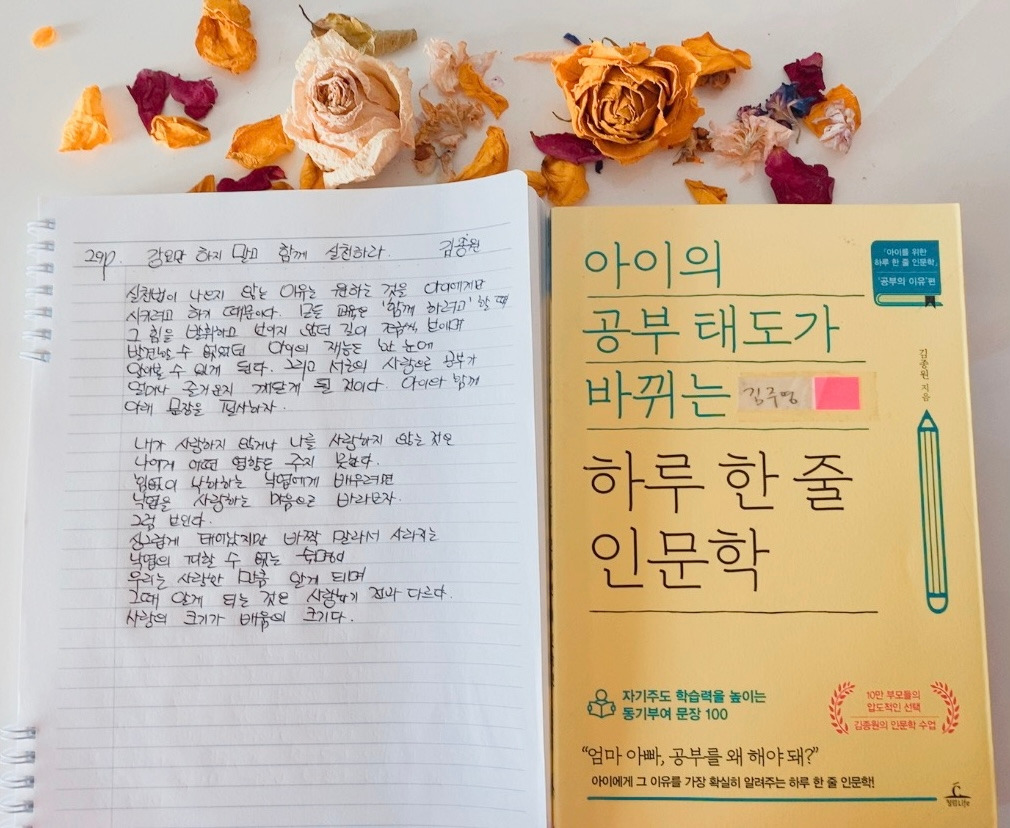 29p. 강요만 하지 말고 함께 실천하라 김종원
실천법이 나쁘지 않는 이유는 원하는 것을 아이에게만
시키려고 하기 때문이다. 모든 교육은 '함께 하려고' 할 때
그 힘을 발휘하고 보이지 않던 길이 조금씩 보이며
발견할 수 없었던 아이의 재능도 한 눈에
알아볼 수 있게 된다. 그리고 서로의 사랑으로 공부가
얼마나 즐거운지 깨닫게 될 것이다. 아이와 함께
아래 문장을 필사하자.
내가 사랑하지 않거나 나를 사랑하지 않는 것은
나에게 어떤 영향도 주지 못한다.
낙하하는 낙엽에게 배우려면
낙엽을 사랑하는 마음으로 바라보자.
그럼 보인다.
싱그럽게 태어났지만 바짝 말라서 사라지는
낙엽의 피할 수 없는 숙명이
우리는 사랑한 만큼 알게 되며
그때 알게 되는 것은 사랑하기 전과 다르다.
사랑의 크기가 배움의 크기다.
아이의
공부 태도가
바뀌는
김주영
하루 한 줄
인문학
「아이를 위한
하루 한 줄 인문학」
'공부의 이유'편
김종원 지음
자기주도 학습력을 높이는
동기부여 문장 100
10만 부모들의
압도적인 선택
김종원의 인문학 수업
"엄마 아빠, 공부를 왜 해야 돼?"
아이에게 그 이유를 가장 확실히 알려주는 하루 한 줄 인문학!
청림Life